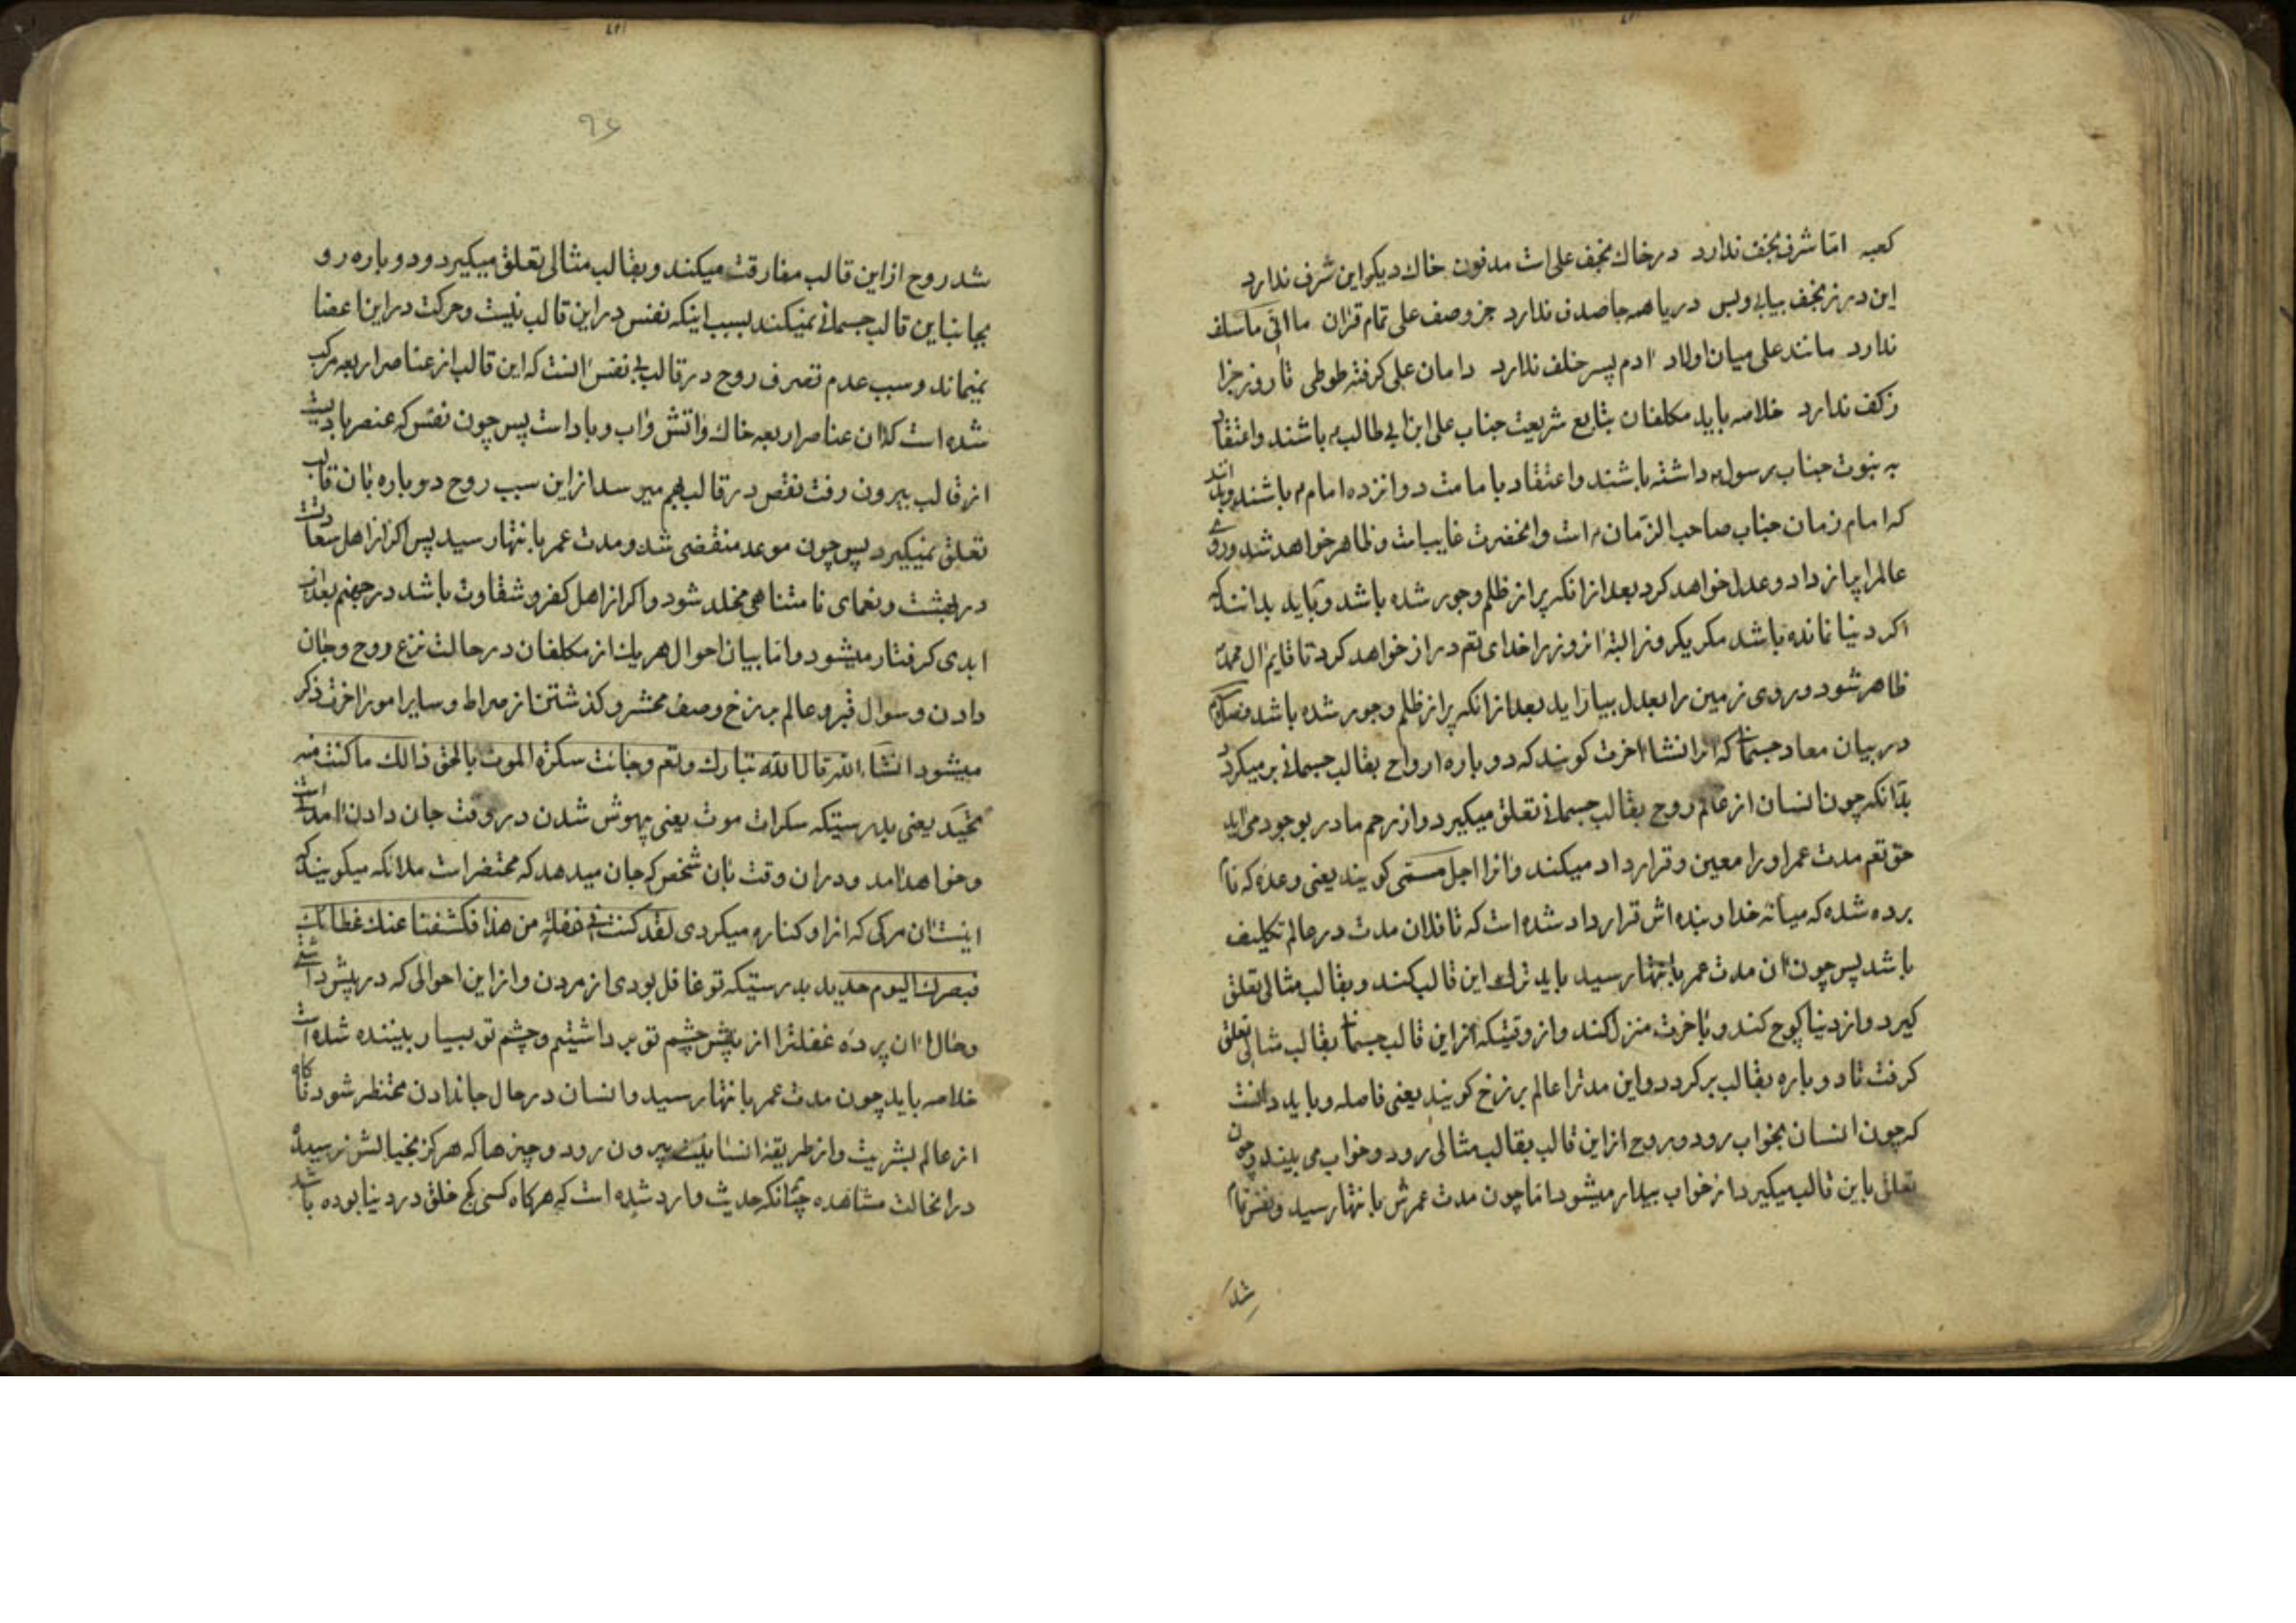 کعبه اما شرف نجف ندارد در خاك نجف علی است مدفون خاك دیکر این شرف ندارد
این در ز نجف بیابی و بس دریا همه جا صدف ندارد جز وصف علی تمام قران ما اتی ماسلف
ندارد مانند علی میان اولاد ادم پسر خلف ندارد دامان علی کرفته طوطی تا روز جزا
زکف ندارد خلاصه باید مکلفان بتابع شریعت جناب علی ابن ابی طالب باشند واعتقاد
به نبوت جناب رسول داشته باشند واعتقاد بامامت دوازده امام باشند
که امام زمان جناب صاحب الزمان است وانحضرت غایب است وظاهر خواهد شد وروی
عالمرا پر از داد وعدل خواهد کرد بعد از انکه پر از ظلم وجور شده باشد وباید بدانند که
اکر دنیا نمانده باشد مکر یکروز البته انروز را خدای تعم دراز خواهد کرد تا قایم ال محمد
ظاهر شود وروی زمین را بعدل بیاراید بعد از انکه پر از ظلم وجور شده باشد
در بیان معاد جسمانی که انرا نشاا اخرت کویند که دوباره ارواح بقالب جسمانی برمیکردد
بدانکه چون انسان از عالم روح بقالب جسمانی تعلق میکیرد واز رحم مادر بوجود می اید
حق تعم مدت عمر او را معین وقرار داد میکند وانرا اجل مسمی کویند یعنی وعده که نام
برده شده که میانه خدا وبنده اش قرار داد شده است که تا فلان مدت در عالم تکلیف
باشد پس چون ان مدت عمر بانتهار سید باید ترك این قالب کند وبقالب مثالی تعلق
کیرد واز دنیا کوچ کند وباخرت منزل کند واز وقتیکه از این قالب جسمانی بقالب مثالی تعلق
کرفت تا دوباره بقالب برکردد واین مدترا عالم برزخ کویند یعنی فاصله وباید دانست
که چون انسان بخواب رود وروح از این قالب بقالب مثالی رود وخواب می بیند وچون
تعلق باین قالب میکیرد از خواب بیدار میشود اما چون مدت عمرش بانتهار سید ونفس تمام
شد
۹۶
شد روح از این قالب مفارقت میکند وبقالب مثالی تعلق میکیرد ودوباره رو
بجانب این قالب جسمانی نمیکند بسبب اینکه نفس در این قالب نیست وحرکت در این اعضا
نمیماند وسبب عدم تصرف روح در قالب بی نفس انست که این قالب از عناصر اربعه مرکب
شده است که ان عناصر اربعه خاك واتش واب وباد است پس چون نفس که عنصر بادیست
از قالب بیرون رفت نقص در قالب بهم میرسد از این سبب روح دوباره بان قالب
تعلق نمیکیرد پس چون موعد منقضی شد ومدت عمر بانتهار سید پس اکر از اهل سعادتست
در بهشت ونعمای نامتناهی مخلد شود واکر از اهل کفر وشقاوت باشد در جهنم بعذاب
ابدی کرفتار میشود واما بیان احوال هر یك از مکلفان در حالت نزع روح وجان
دادن وسوال قبر وعالم برزخ وصف محشر وکذشتن از صراط وسایر امور اخرت ذکر
میشود انشاء الله قال الله تبارك وتعم وجائت سکرة الموت بالحق ذالك ماکنت منه
تحید یعنی بدرستیکه سکرات موت یعنی بیهوش شدن در وقت جان دادن امده است
وخواهد امد ودر ان وقت بان شخص که جان میدهد که محتضر است ملائکه میکویند که
اینست ان مرکی که از او کناره میکردی لقد کنت فی غفلة من هذا فکشفنا عنك غطائك
فبصرك الیوم حدید بدرستیکه تو غافل بودی از مردن واز این احوالی که در پیش داشتی
وحال ان پرده غفلترا از پیش چشم تو برداشتیم وچشم تو بسیار بیننده شده است
خلاصه باید چون مدت عمر بانتهار سید وانسان در حال جاندادن محتظر شود
از عالم بشریت واز طریقه انسانیت بیرون رود وچیزها که هرکز بخیالش نرسیده
در انحالت مشاهده چنانکه حدیث وارد شده است که هرکاه کسی کج خلق در دنیا بوده باشد